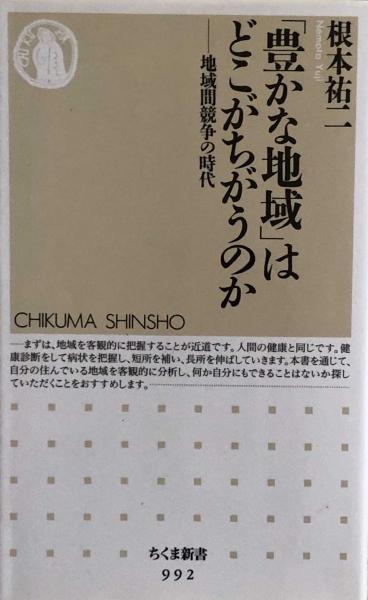 根本祐二
Nemoto Yuji
「豊かな地域」は
どこがちがうのか
──地域間競争の時代
CHIKUMA SHINSHO
─まずは、地域を客観的に把握することが近道です。人間の健康と同じです。健
康診断をして病状を把握し、短所を補い、長所を伸ばしていきます。本書を通じて、
自分の住んでいる地域を客観的に分析し、何か自分にもできることはないか探し
ていただくことをおすすめします。
ちくま新書
992